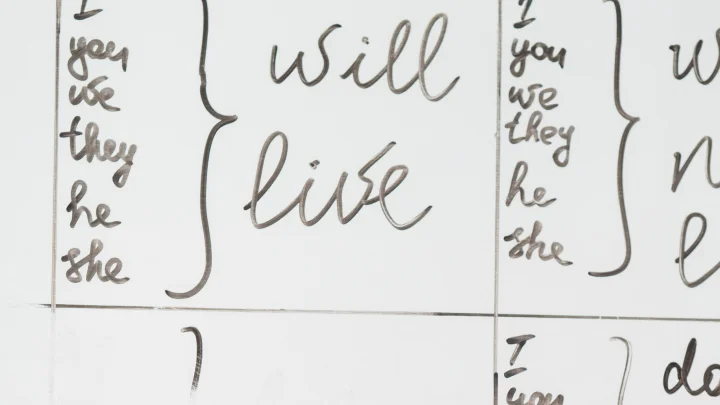 I
you
we
they
he
she
will
live
I
you
we
they
he
she
I
you